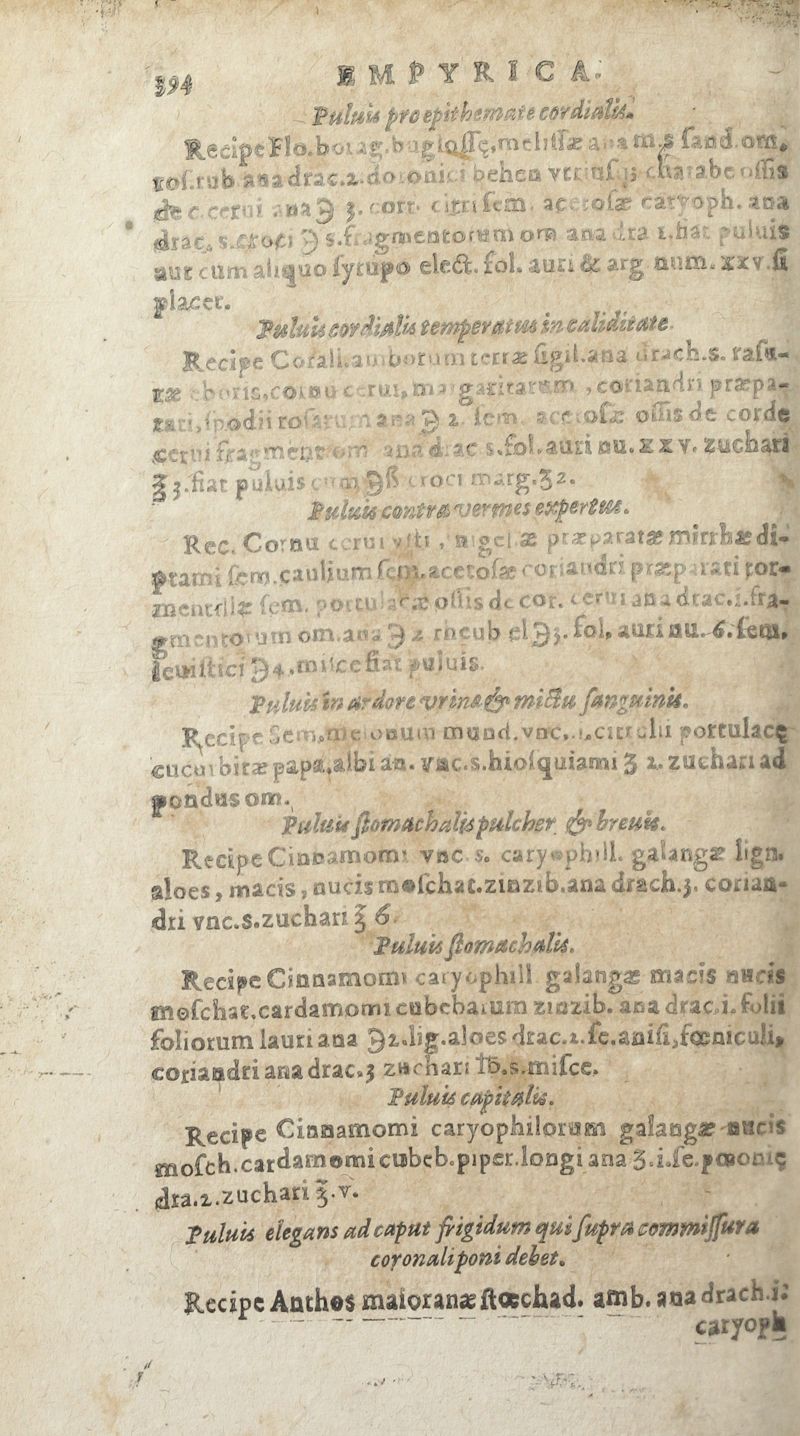 194 EMPYRICA.
Puluis pro epithemate cordialis.
Recipe Flo. borag. buglossę, melissæ ana m.s sand. om.
ros. rub. ana drac.2. doronici behen vtriusq; charabe ossis
de c. cerui ana ℈ j. cort. citri sem. acetosæ caryoph. ana
drac. s. croci ℈ s. fragmentorum om ana dra 1. fiat puluis
aut cum aliquo syrupo elect. fol. auri & arg num. xxv. si
placet.
Puluis cordialis temperatus in caliditate.
Recipe Corall. amborum terræ sigil. ana drach. s. rasu-
ræ eboris, cornu cerui, margaritarum, coriandri præpa-
rati, spodii rosarum ana ℈ 2. sem. acetosæ ossis de corde
cerui fragment om ana drac s. fol. auri nu. xxv. zuchari
℥ 3. fiat puluis cum ℈ß croci marg. ʒ2.
Puluis contra vermes expertus.
Rec. Cornu cerui vsti, nigellæ præparatæ mirrhæ di-
ptami sem. caulium sem. acetosæ coriandri præparati tor-
mentillæ sem. portulacæ ossis de cor. cerui ana drac. i. fra-
gmentorum om. ana ℈ 2 rheub el ℈j. fol. auri nu. 6. sem.
leuistici ℈ 4. misce fiat puluis.
Puluis in ardore vrinæ & mictu sanguinis.
Recipe Sem. melonum mund. vnc. citruli portulacę
cucurbitæ papa. albi an. vnc. s. hiosquiami ʒ 2. zuchari ad
pondus om.
Puluis stomachalis pulcher & breuis.
Recipe Cinnamomi vnc s. caryophill. galangæ lign.
aloes, macis, nucis moschat. zinzib. ana drach. j. corian-
dri vnc. s. zuchari ℥ 6.
Puluis stomachalis.
Recipe Cinnamomi caryophill galangæ macis nucis
moschat. cardamomi cubebarum zinzib. ana drac. i. folii
foliorum lauri ana ℈2. lig. aloes drac. 2. se. anisi, fœniculi,
coriandri ana drac. 3 zuchari ℔. s. misce.
Puluis capitalis.
Recipe Cinnamomi caryophilorum galangæ nucis
mosch. cardamomi cubeb. piper. longi ana ʒ. i. se. pœonię
dra. 2. zuchari ℥. v.
Puluis elegans ad caput frigidum qui supra commissura
coronali poni debet.
Recipe Anthos maioranæ stœchad. amb. ana drach. i.
caryoph